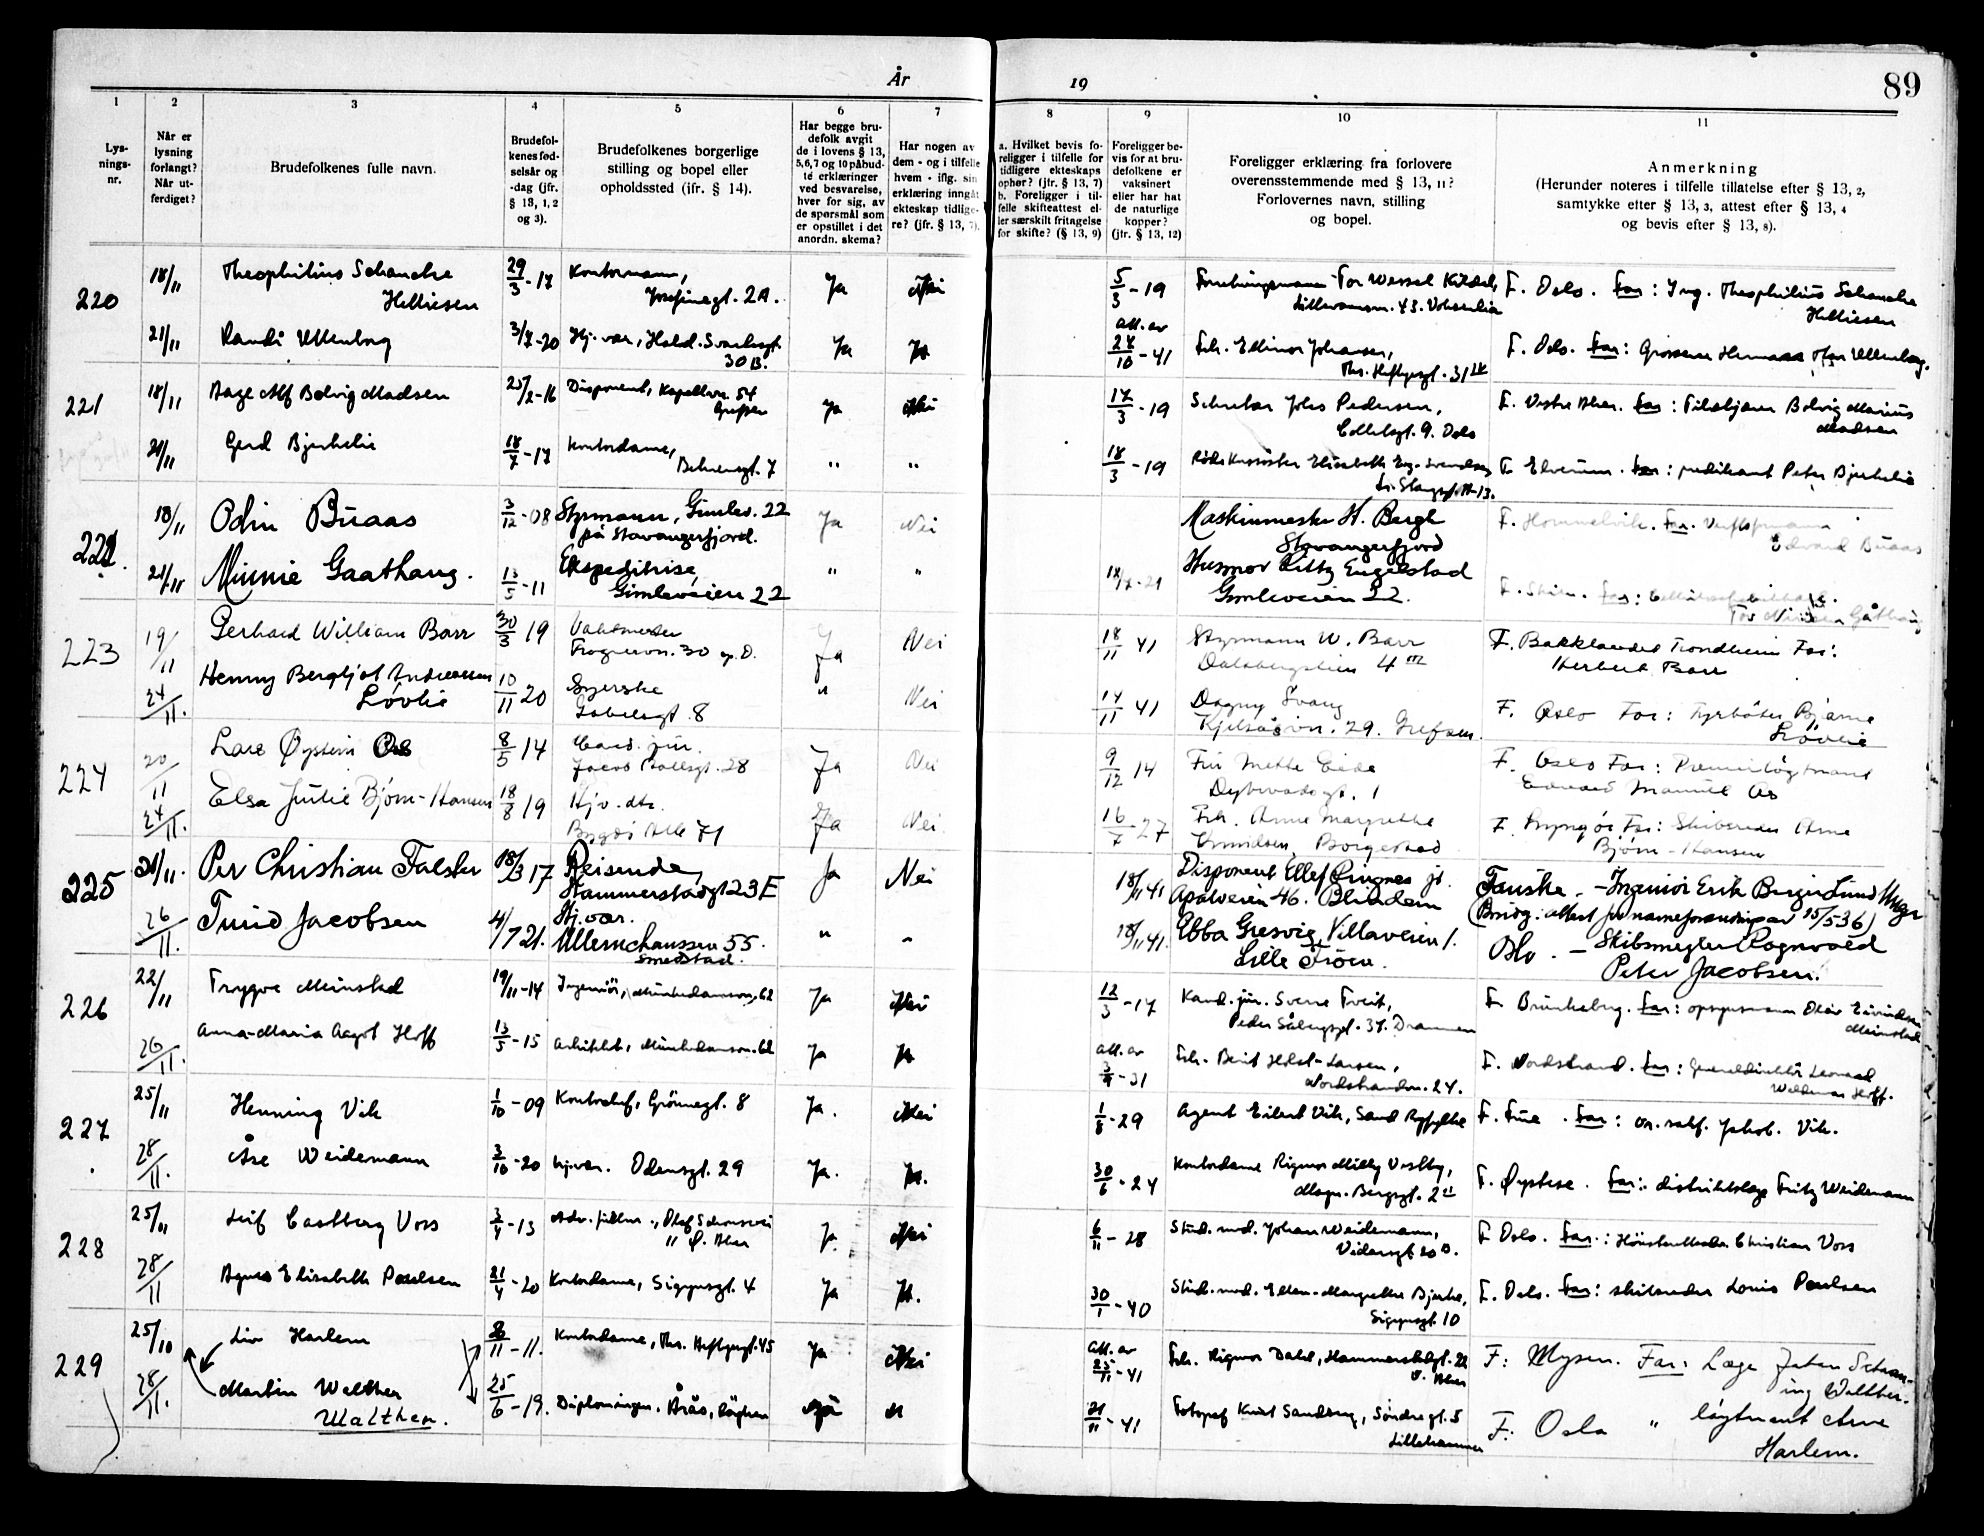 År 19
89
1 2 3 4 5 6 7 8 9 10 11
Lys-
nings-
nr.
Når er
lysning
forlangt?
Når ut-
ferdiget?
Brudefolkenes fulle navn.
Brudefol-
kenes fød-
selsår og
-dag (jfr.
§ 13, 1, 2
og 3).
Brudefolkenes borgerlige
stilling og bopel eller
opholdssted (ifr. § 14).
Har begge bru-
defolk avgit
de i lovens § 13,
5,6,7 og 10 påbud-
te erklæringer
ved besvarelse,
hver for sig, av
de spørsmål som
er opstillet i det
anordn. skema?
Har nogen av
dem - og i tilfelle
hvem - iflg. sin
erklæring inngåt
ekteskap tidlige-
re? (jfr. § 13, 7).
a. Hvilket bevis fo-
religger i tilfelle for
tidligere ekteskaps
ophør? (jfr. § 13, 7)
b. Foreligger i til-
felle skifteattest el-
ler særskilt fritagelse
for skifte? (§ 13, 9)
Foreligger be-
vis for at bru-
defolkene er
vaksinert
eller har hat
de naturlige
kopper?
(jfr. § 13, 12)
Foreligger erklæring fra forlovere
overensstemmende med § 13, 11?
Forlovernes navn, stilling
og bopel.
Anmerkning
(Herunder noteres i tilfelle tillatelse efter § 13, 2,
samtykke efter § 13, 3, attest efter § 13, 4
og bevis efter § 13, 8).
220 18/11 Theophilius Schanche 29/3-17 Kontormann, Ja Nei 5/3-19 Tor Wessel Kildal, F. Oslo. Far: Ing. Theophilius Schanche
Helliesen Josefinegt. 2A. Lillevannsv. 43. Voksenlia Helliesen
21/11 Randi Ullenborg 3/7-20 Hj. vær, Hald. Svartesgt. Ja att. av 27/10-41 Frk. Ellinor Johansen, F. Oslo. Far: Grosserer
30 B. Ths. Heftyesgt. 31
221 18/11 Aage Alf Bolvig Madsen 25/2-16 Disponent, Kapellvn. 54 Ja Nei 17/3-19 Sekretær Johs Pedersen, F. Vestre Aker. Far: Bolvig Marius
Grefsen Collettsgt. 9. Oslo Madsen
21/11 Gerd Bjerkelie 18/7-17 Kontordame, " " 18/3-19 F. Elverum. Far: predikant Peter Bjerkelie
Behrensgt. 7
222. 18/11 Odin Buaas 3/12-08 Styrmann, Gimlev. 22 Ja Nei Maskinmester H. Bergh F. Hommelvik. Far.
på Stavangerfjord. Stavangerfjord Edvard Buaas
21/11 Minnie Gaathaug. 13/5-11 Ekspeditrise, " " Husmor Kitty Engelstad F. Skien. Far:
Gimleveien 22 Gimleveien 22. Gåthaug
223 19/11 Gerhard William Barr 30/3 19 Ja Nei 18/11 41 Styrmann W. Barr F. Bakklandet Trondheim Far:
Frognervn. 30 Dalsbergstien 4 III Herbert Barr
24/11. Henny Bergljot Andreassen 10/11 20 Syerske " Nei 14/11 41 Dagny Svang F. Oslo Far: Fyrbøter Bjarne
Løvlie Gabelsgt. 8 Kjelsåsvn. 29. Grefsen. Løvlie
224 20/11 Lars Øystein Os 8/5 14 Cand. jur. Ja Nei 9/12 14 Fru Mette Eide F. Oslo Far: Premierløytnant
Jacob Aallsgt. 28 Dybwadsgt. 1 Edvard Manuel Os
24/11. Elsa Julie Bjørn-Hansen 18/8 19 Hjv. dtr. Ja Nei. 16/7 27 Frk. Anne Margrethe F. Far: Skibsreder Arne
Bygdø Alle 71 Borgestad Bjørn-Hansen
225 21/11. Per Christian Falster 18/3 17 Reisende, Ja Nei 18/11 41 Disponent Ellef Ringnes jr. Fauske. - Ingeniør Erik Birger Lund
Hammerstadgt 23 E Apalveien 46. Blindern (Brudg: attest for navneforandring av 15/5 36)
26/11. Turid Jacobsen 4/7 21. Hj. vær. " " 18/11 41. Ebba Gresvig, Villaveien 1. Oslo. - Skibsmegler Ragnvald
Ullernchausseen 55. Lille Frøen. Peter Jacobsen.
Smestad.
226 22/11 Trygve Meinstad 19/11-14 Ingeniør, Munkedamsvn. 62 Ja Nei 12/3-17 Kand. jur. Sverre Tveit, F. Brunkeberg. Far: Olav Eivindsen
Drammen Meinstad
26/11. Anna-Maria Aagot Hoff 13/5-15 Arkitekt, Munkedamsvn. 62 Ja att. av 3/9-31 Frk. Berit Holst-Larsen, F. Nordstrand. Far: Generaldirektør Leonard
Nordstrandvn. 24. Waldemar Hoff.
227 25/11 Henning Vik 1/10-09 Kontorchef, Grønnegt. 8 Ja. Nei 1/8-29 Agent Eilert Vik, Sand Ryfylke F. Far: Jakob. Vik.
28/11. Åse Weidemann 3/10-20 Hj.vær. Odinsgt. 29 Ja. 30/6-24 Kontordame Rigmor Milly Vestby, F. Øystese. Far: distriktslege Fritz Weidemann
Magn. Bergsgt. 2
228 25/11 Leif Castberg Voss 3/4-13 Ja. Nei 6/11-28 Stud. med. Johan Weidemann, F Oslo. Far: Christian Voss
Ø. Aker
28/11 Agnes Elisabeth Paulsen 21/4-20 Kontordame, Sigynsgt. 4 Ja 30/1-40 Stud. med. Ellen-Margrethe Bjerke, F. Oslo. Far: skibsreder Louis Paulsen
Sigynsgt 10
229 25/10 Liv Harlem 11-11. Kontordame, Ths. Heftyesgt. 45 Ja Nei att. av 25/11-41 Frk. Rigmor Dahl, F: Mysen. Far: Læge
V. Aker Walther.
28/11. Martin Walther 25/6-19. Diplomingen. Årås, 21/11-41 Fotograf Knut Sandberg, Søndregt. 5 F: Oslo " løytnant Arne
Walther. Lillehammer Harlem.